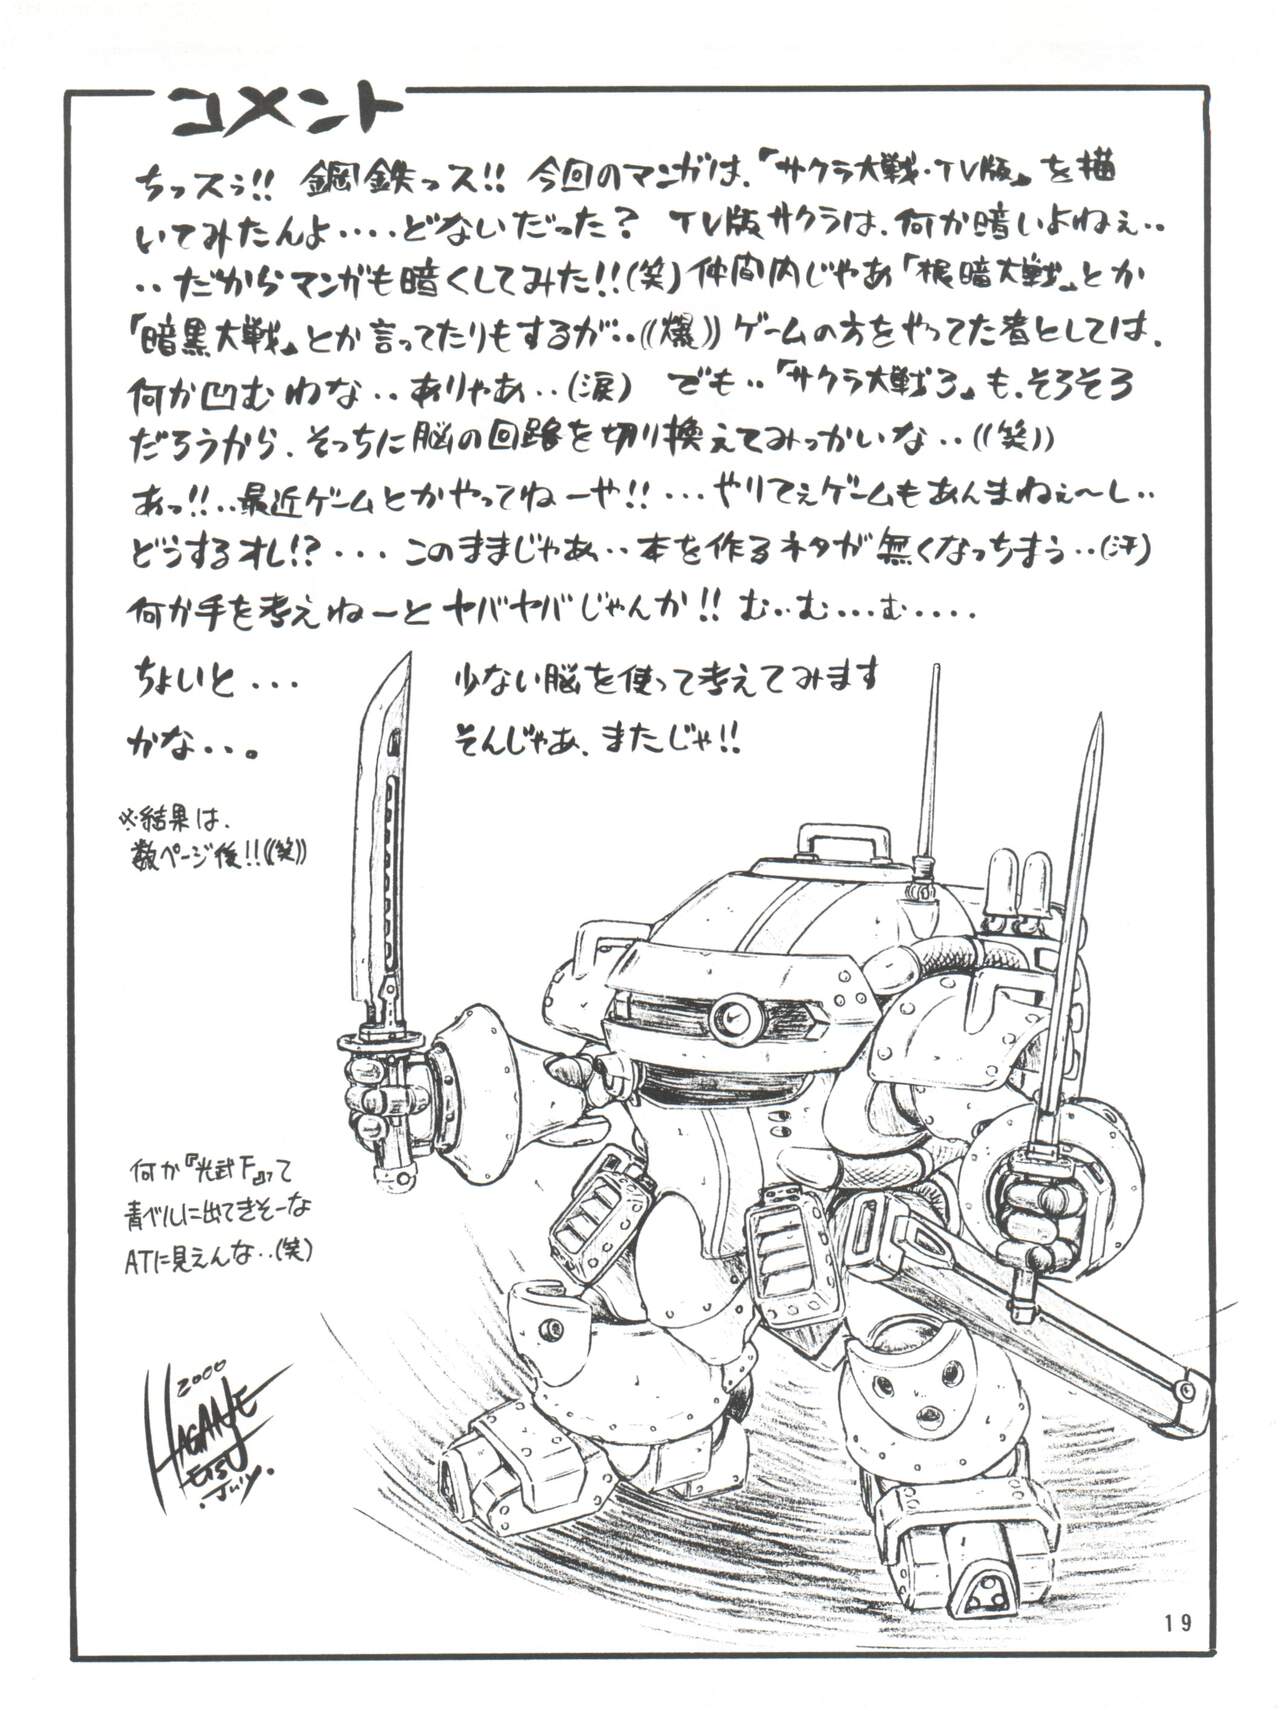 コメント
ちっスぅ!! 鋼鉄っス!! 今回のマンガは、『サクラ大戦・TV版』を描
いてみたんよ‥‥どないだった? TV版サクラは、何か暗いよねぇ‥
‥だからマンガも暗くしてみた!!(笑)仲間内じゃあ「根暗大戦」とか
「暗黒大戦」とか言ってたりもするが‥((爆))ゲームの方をやってた者としては、
何か凹むわな‥ありゃあ‥(涙) でも‥『サクラ大戦3』も、そろそろ
だろうから、そっちに脳の回路を切り換えてみっかいな‥((笑))
あっ!!‥最近ゲームとかやってねーや!!…やりてぇゲームもあんまねぇ〜し‥
どうするオレ!?… このままじゃあ‥本を作るネタが無くなっちまう‥(汗)
何か手を考えねーとヤバヤバじゃんか!! む‥む…む‥‥
ちょいと… 少ない脳を使って考えてみます
かな‥。 そんじゃあ、またじゃ!!
※結果は、
数ページ後!!((笑))
何か『光武F』って
青ベルに出てきそーな
ATに見えんな‥(笑)
2000
HAGANE
ETSU
.July.
19